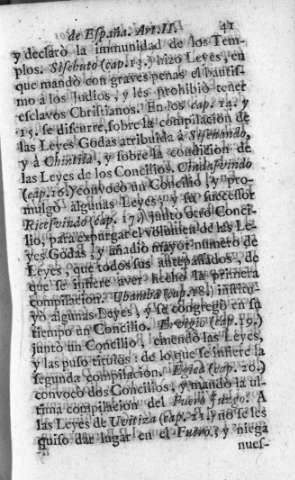 de España. Art. II. 41
y declarò la immunidad de los Tem-
plos. Sisebuto (cap. 13.) hizo Leyes, en
que mandò con graves penas el bautis-
mo à los Judios, y les prohibiò tener
esclavos Christianos. En los cap. 14. y
15. se discurre, sobre la compilacion de
las Leyes Godas atribuida à Sisenando,
y à Chintila, y sobre la condicion de
las Leyes de los Concilios. Cindasvindo
(cap. 16.) convocò un Concilio, y pro-
mulgò algunas Leyes; y su successor
Recesvindo (cap. 17.) juntò otro Conci-
lio, para expurgar el volumen de las Le-
yes Godas, y añadiò mayor numero de
Leyes, que todos sus antepassados, de
que se infiere aver hecho la primera
compilacion. Ubamba (cap. 18.) institu-
yò algunas Leyes, y se congregò en su
tiempo un Concilio. Ervigio (cap. 19.)
juntò un Concilio, emendò las Leyes,
y las puso titulos: de lo que se infiere la
segunda compilacion. Egica (cap. 20.)
convocò dos Concilios, y mandò la ul-
tima compilacion del Fuero Juzgo. A
las Leyes de Uvitiza (cap. 21.) no se les
quiso dar lugar en el Fuero; y niega
nues-